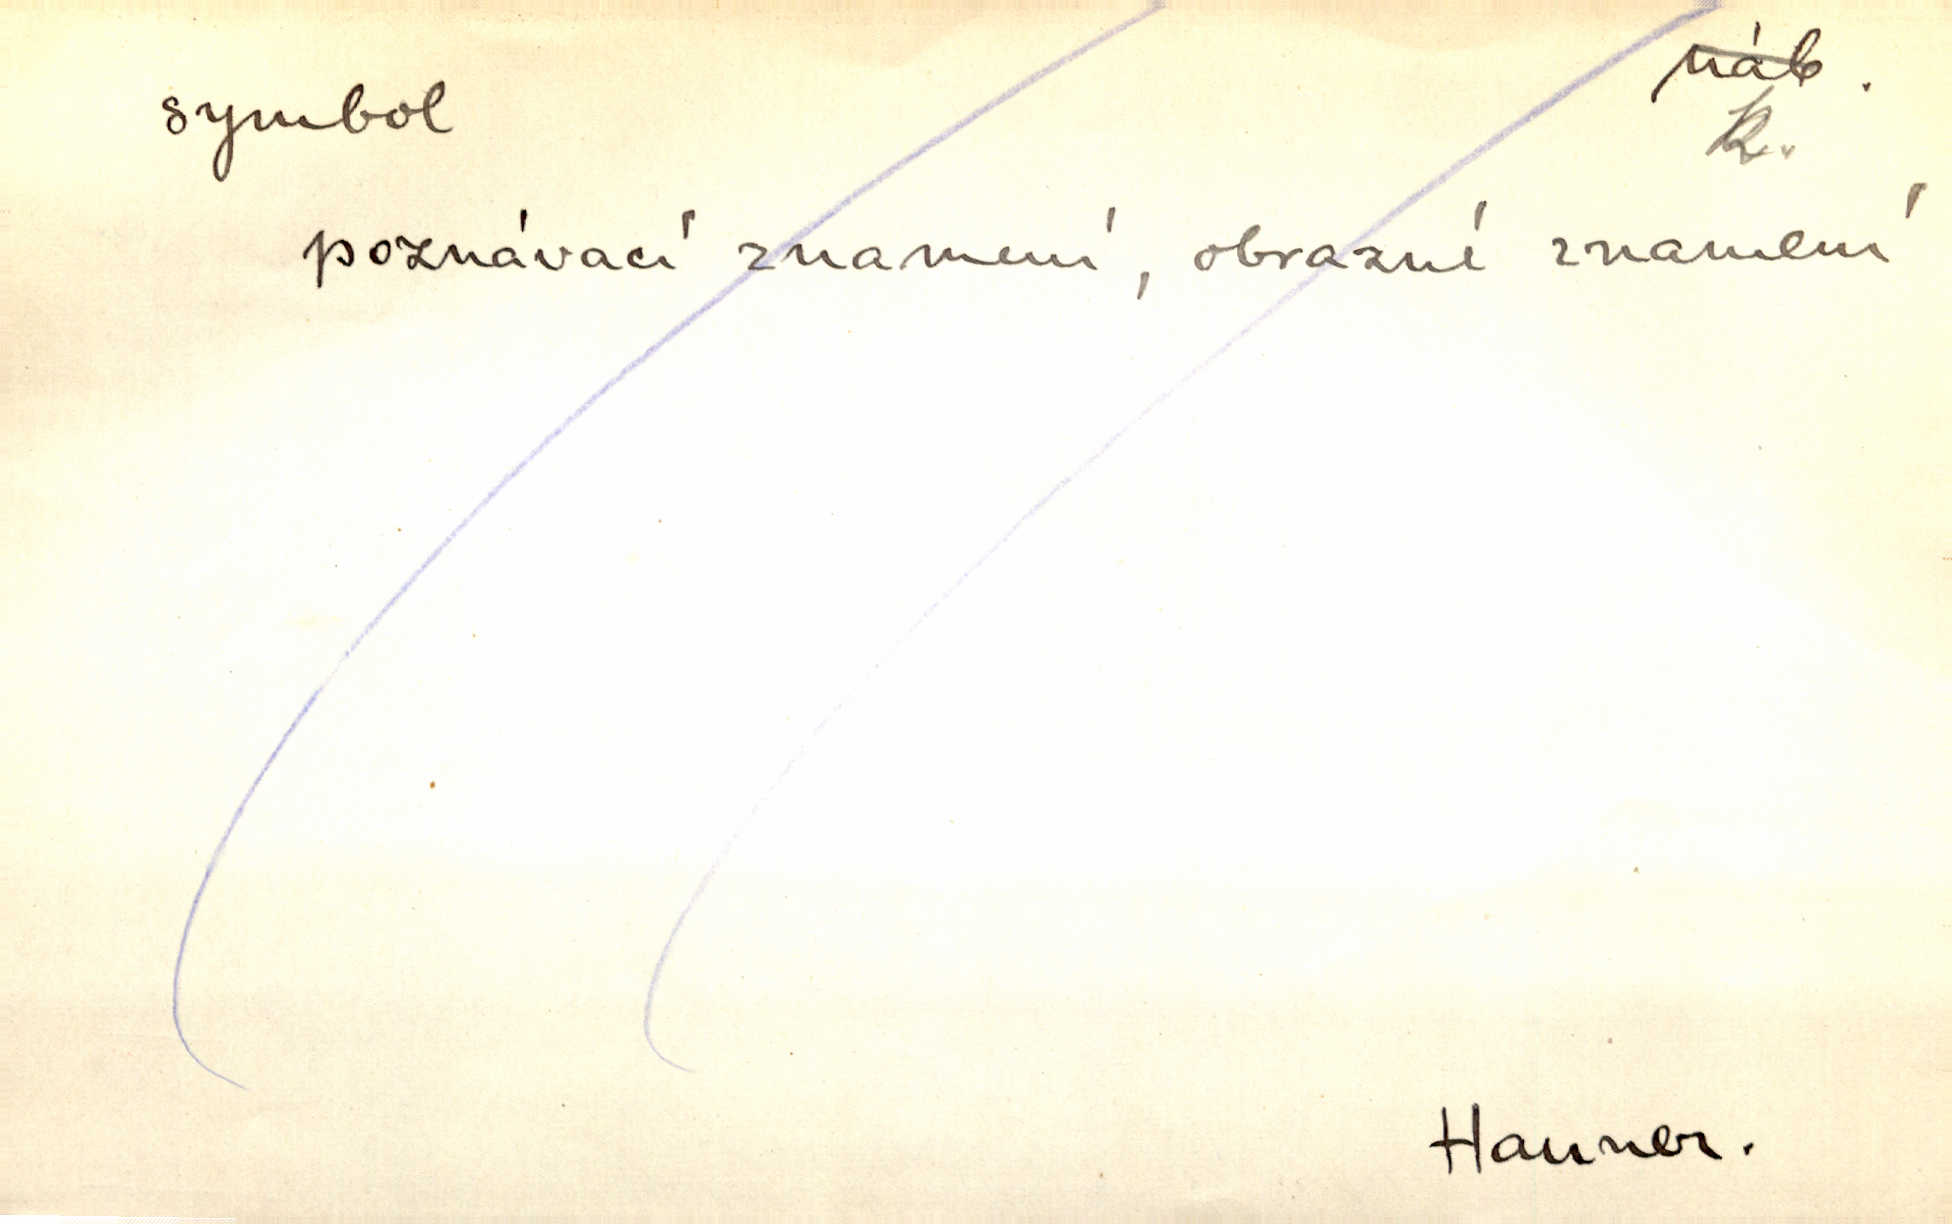 symbol
náb.
k.
poznávací znamení, obrazné znamení
Hanner.